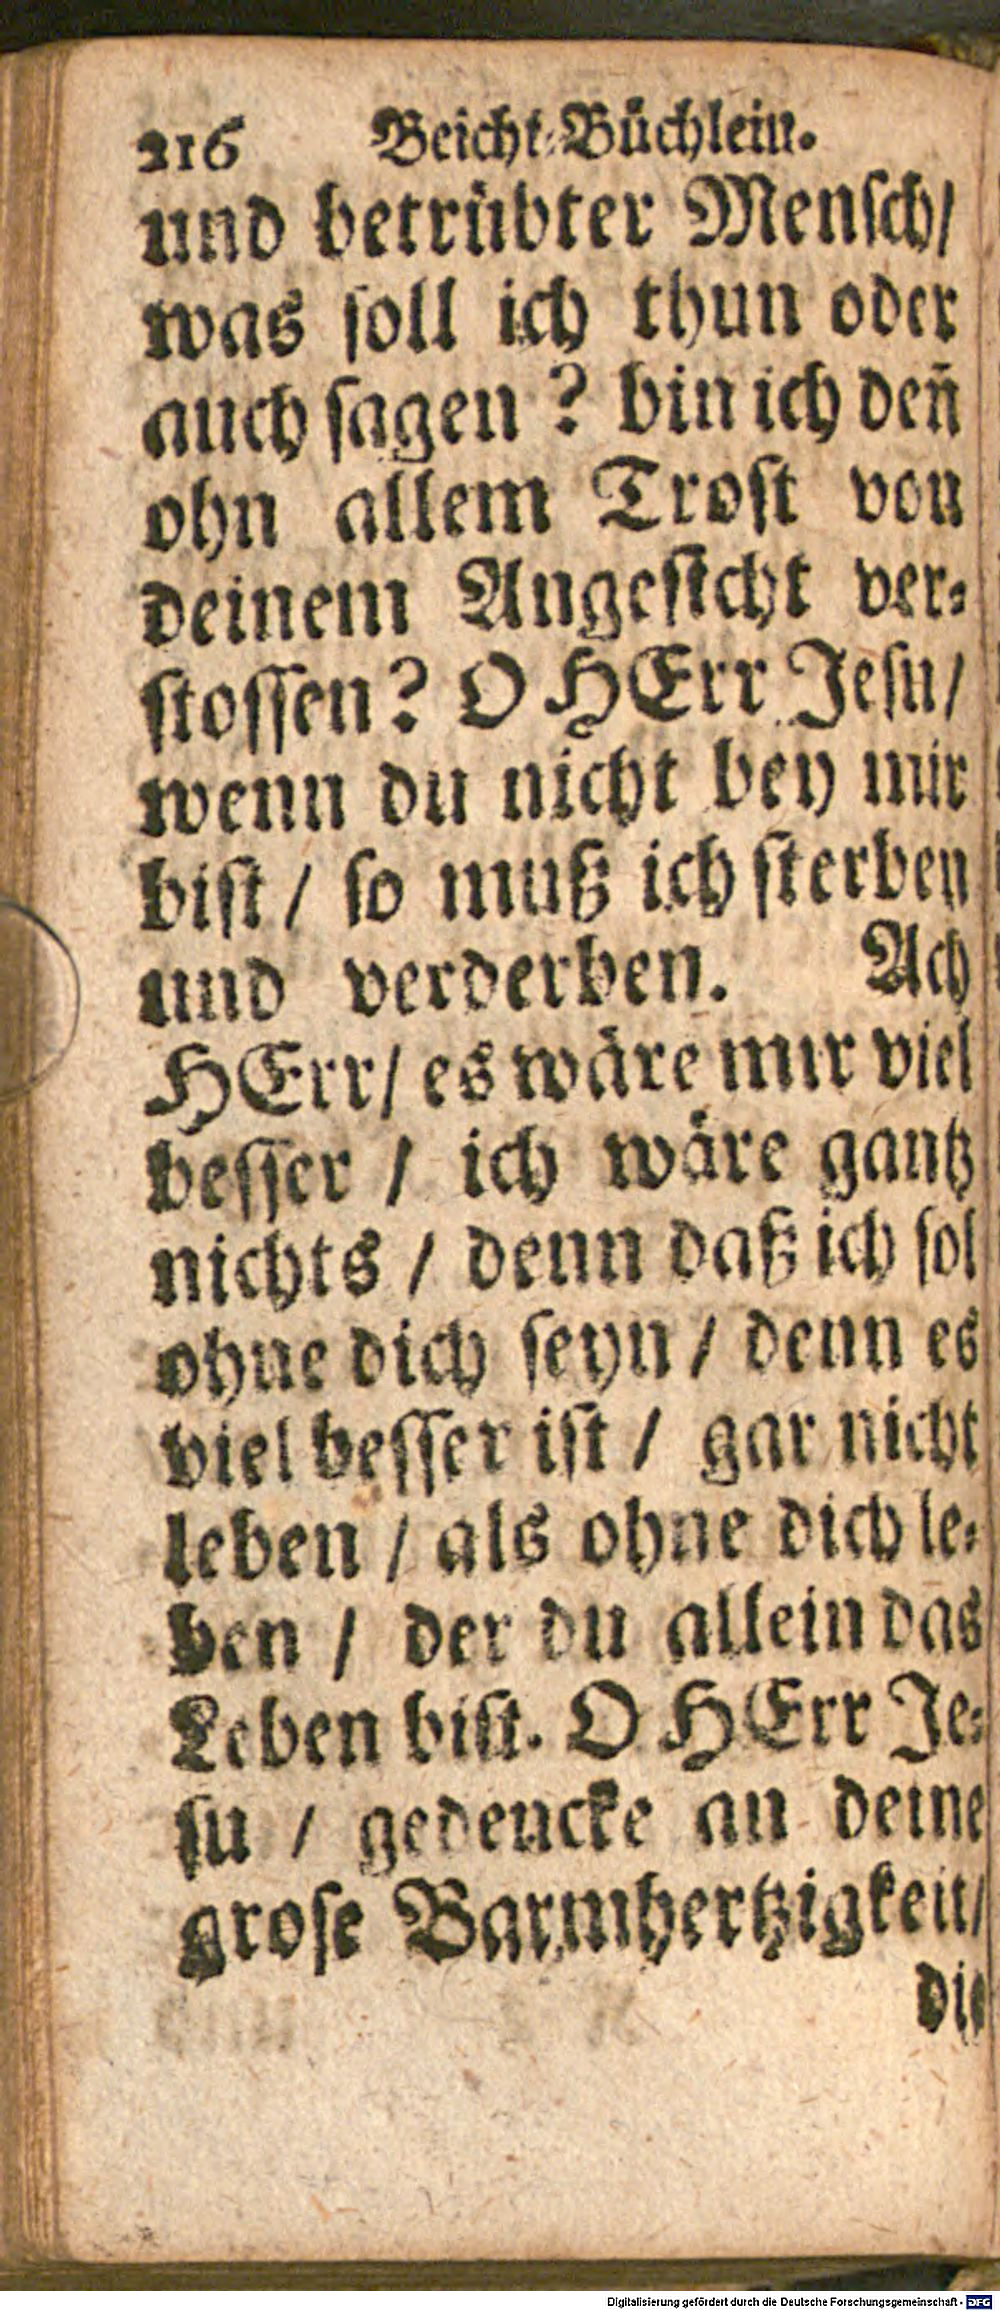 216 Beicht-Büchlein.
und betrübter Menſch/
was ſoll ich thun oder
auch ſagen? bin ich deñ
ohn allem Troſt von
deinem Angeſicht ver-
ſtoſſen? O HErr Jeſu/
wenn du nicht bey mir
biſt / ſo muß ich ſterben
und verderben. Ach
HErr/ es wäre mir viel
beſſer / ich wäre gantz
nichts / denn daß ich ſol
ohne dich ſeyn / denn es
viel beſſer iſt / gar nicht
leben / als ohne dich le-
ben / der du allein das
Leben biſt. O HErr Je-
ſu / gedencke an deine
groſe Barmhertzigkeit/
die
Digitalisierung gefördert durch die Deutsche Forschungsgemeinschaft - DFG